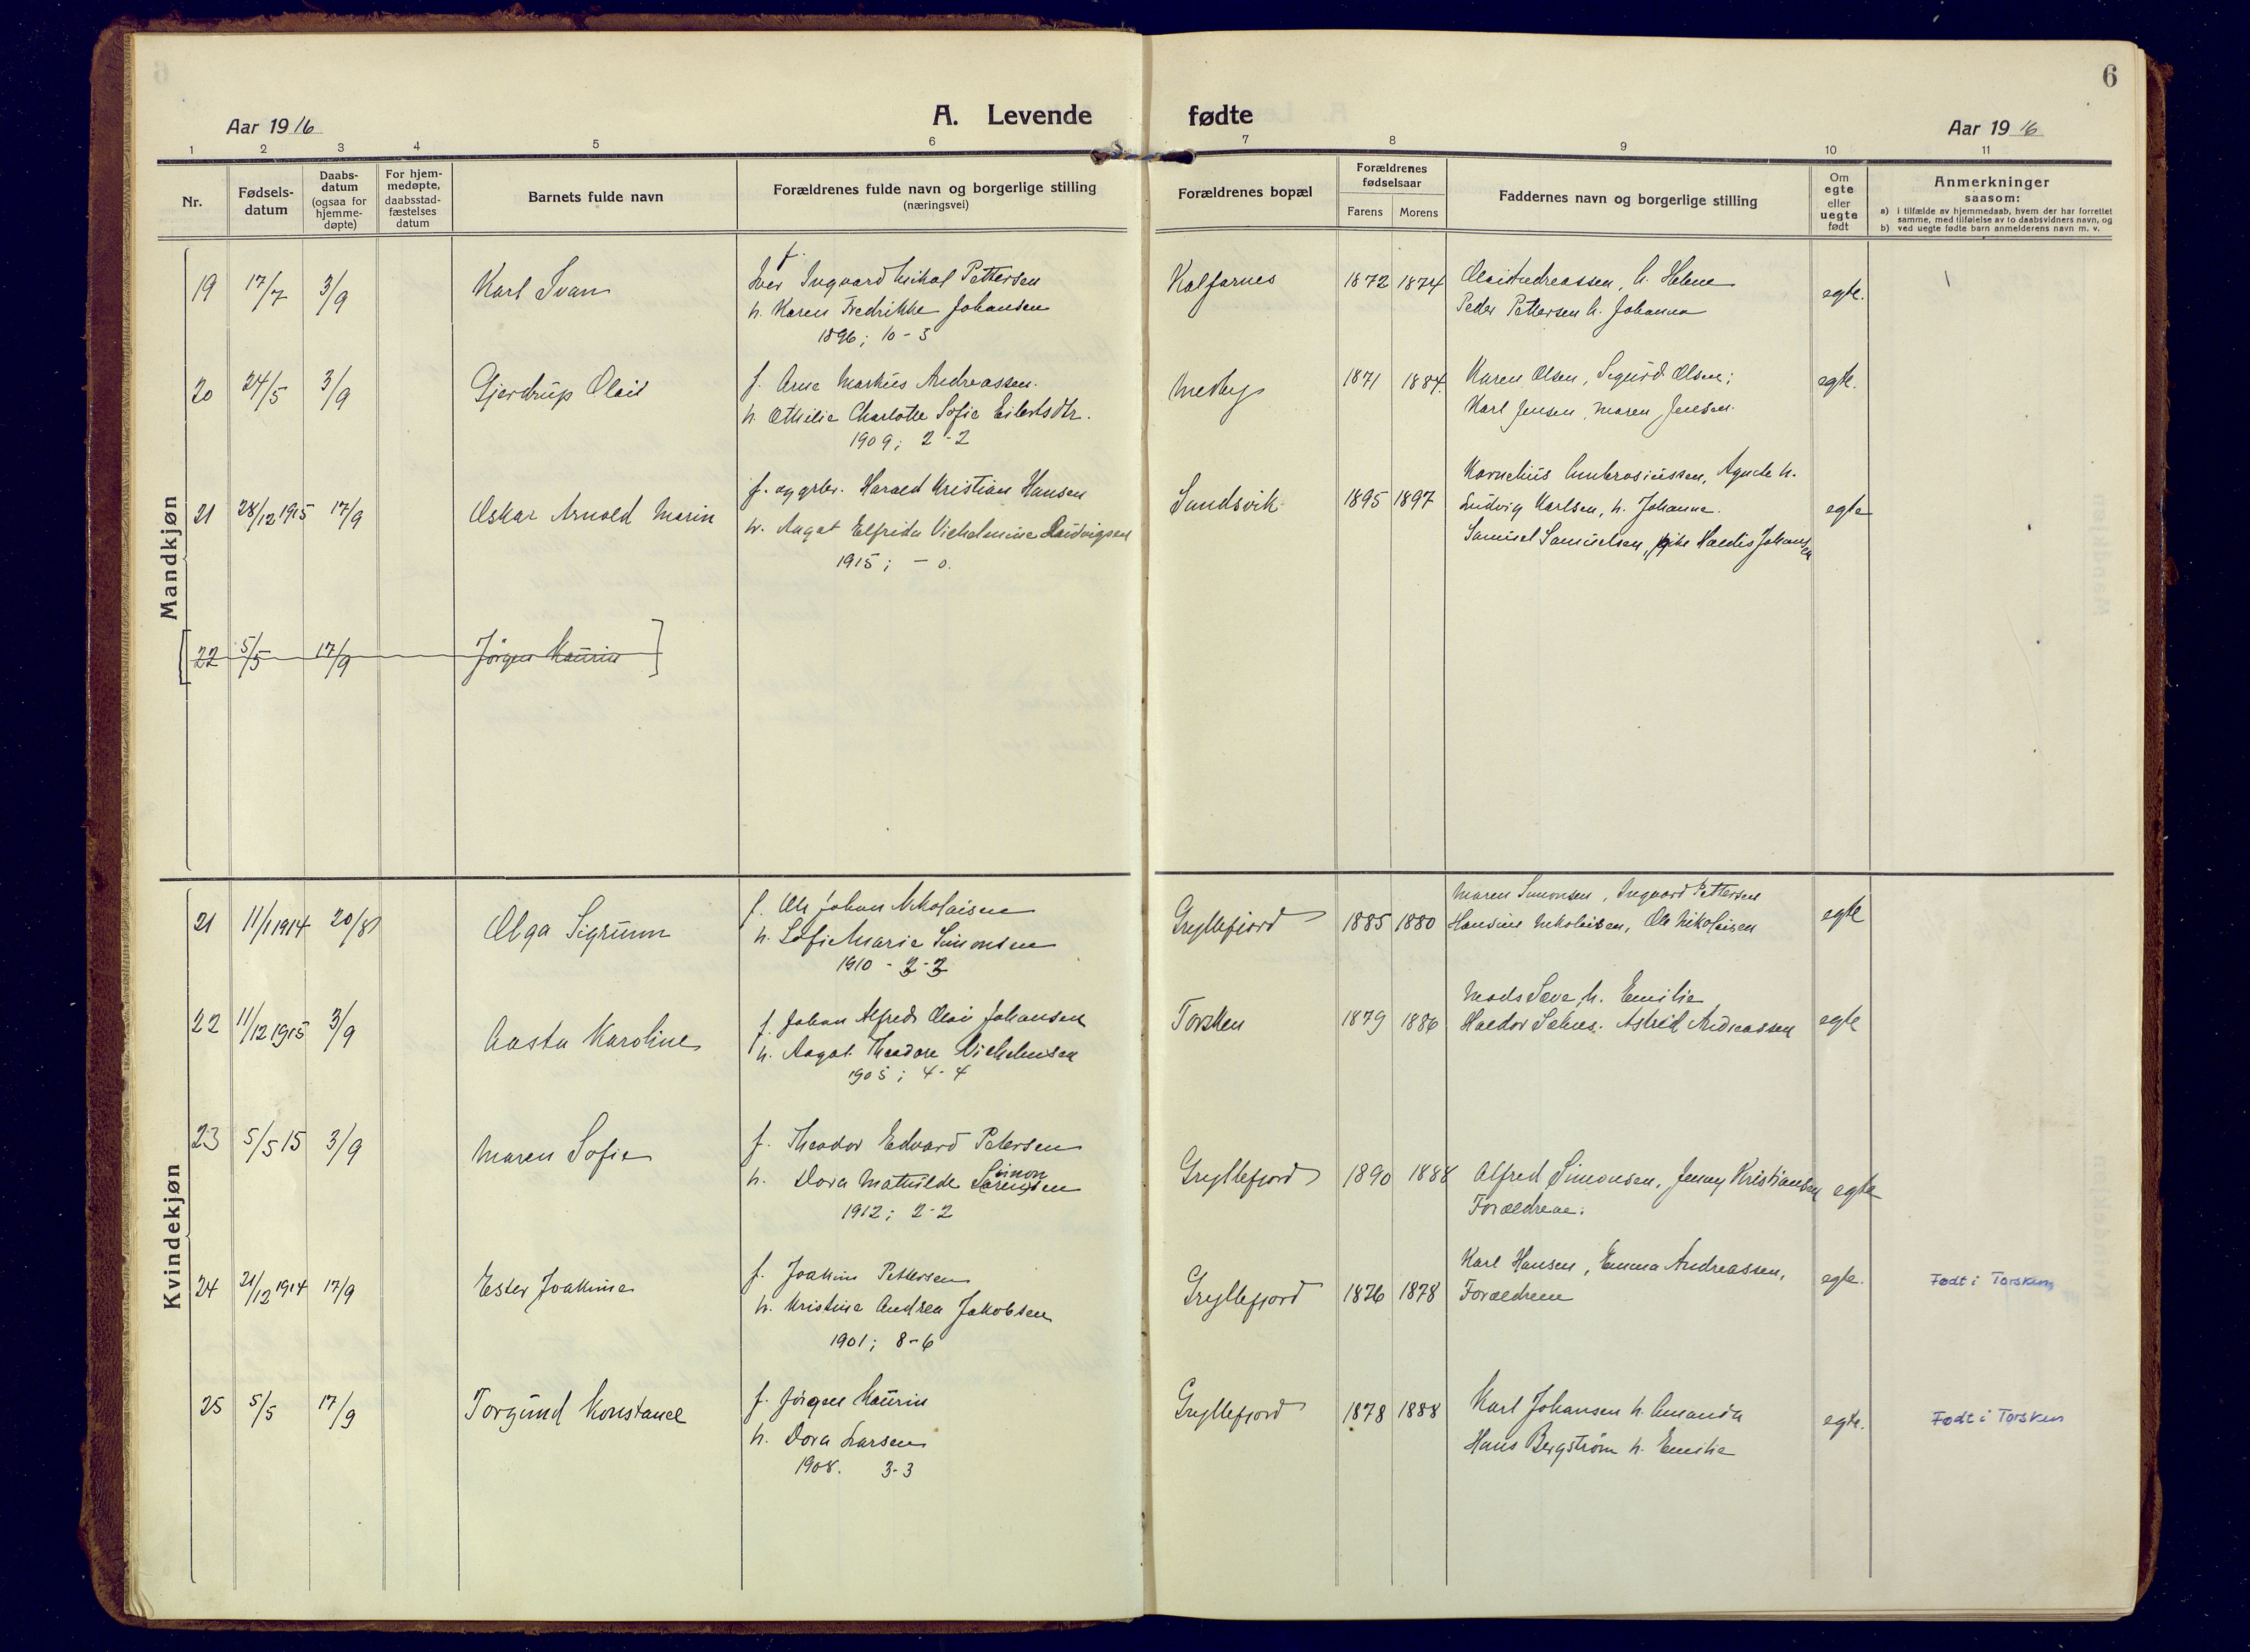 6
Aar 1916
A. Levende fødte
Aar 1916
1 2 3 4 5 6 7 8 9 10 11
Nr.
Fødsels-
datum
Daabs-
datum
(ogsaa for
hjemme-
døpte)
For hjem-
medøpte,
daabsstad-
fæstelses
datum
Barnets fulde navn
Forældrenes fulde navn og borgerlige stilling
(næringsvei)
Forældrenes bopæl
Forældrenes
fødselsaar
Farens Morens
Faddernes navn og borgerlige stilling
Om
egte
eller
uegte
født
Anmerkninger
saasom:
a) i tilfælde av hjemmedaab, hvem der har forrettet
samme, med tilføielse av to daabsvidners navn, og
b) ved uegte fødte barn anmelderens navn m. v.
Mandkjøn
19 17/7 3/9 Karl Ivan
f. Iver Ingvard Mikal Pettersen
h. Karen Fredrikke Johansen
1896; 10-5
Kalfarnes 1872 1874
Olai Andreassen, h. Helene
Peder Pettersen h. Johanna
egte.
20 24/5 3/9 Gjertrup Olais
f. Arne Markus Andreassen.
h. Othilie Charlotte Sofie Eilertsdtr.
1909; 2-2
Medby 1871 1884.
Karen Olsen, Sigurd Olsen;
Karl Jensen, Maren Jensen.
egte.
21 28/12 1915 17/9 Oskar Arnold Marin
f. Harald Kristian Hansen
h. Aagot Elfrida Vilhelmine Ludvigsen
1915; - 0.
Sandsvik 1895 1897
Kornelius Ambrosiussen, Agnete h.
Ludvig Karlsen, h. Johanne.
Samuel Samuelsen, pike Haldis Johansen
egte
[22 5/5 17/9 Jörgen Maurin]
Kvindekjøn
21 11/1 1914 20/8 Olga Sigrunn
f. Ole Johan Nikolaisen
h. Sofie Marie Simonsen
1910 - 3-3
Gryllefjord 1885 1880
Maren Simonsen, Ingvard Pettersen
Hansine Nikolaisen, Ole Nikolaisen
egte
22 11/12 1915 3/9 Aasta Karoline
f. Johan Alfred Olai Johansen
h. Aagot Theodore Vilhelmsen
1905; 4-4
Torsken 1879 1886
Mads h. Emilie
Haldor Astrid Andreassen
egte
23 5/5 15 3/9 Maren Sofie
f. Theodor Edvard Petersen
h. Dora Mathilde Simonsen
1912; 2-2
Gryllefjord 1890 1888
Alfred Simonsen, Jenny Kristiansen
Forældrene.
egte
24 21/12 1914 17/9 Ester Joakime
f. Joakim Pettersen
h. Kristine Andrea Jakobsen
1901; 8-6
Gryllefjord 1876 1878
Karl Hansen, Emma Andreassen,
Forældrene
egte.
Født i Torsken
25 5/5 17/9 Torgund Konstance
f. Jörgen Maurin
h. Dora Larsen
1908. 3-3
Gryllefjord 1878 1888
Karl Johansen h. Amanda
Hans Bergström h. Emilie
egte.
Født i Torsken